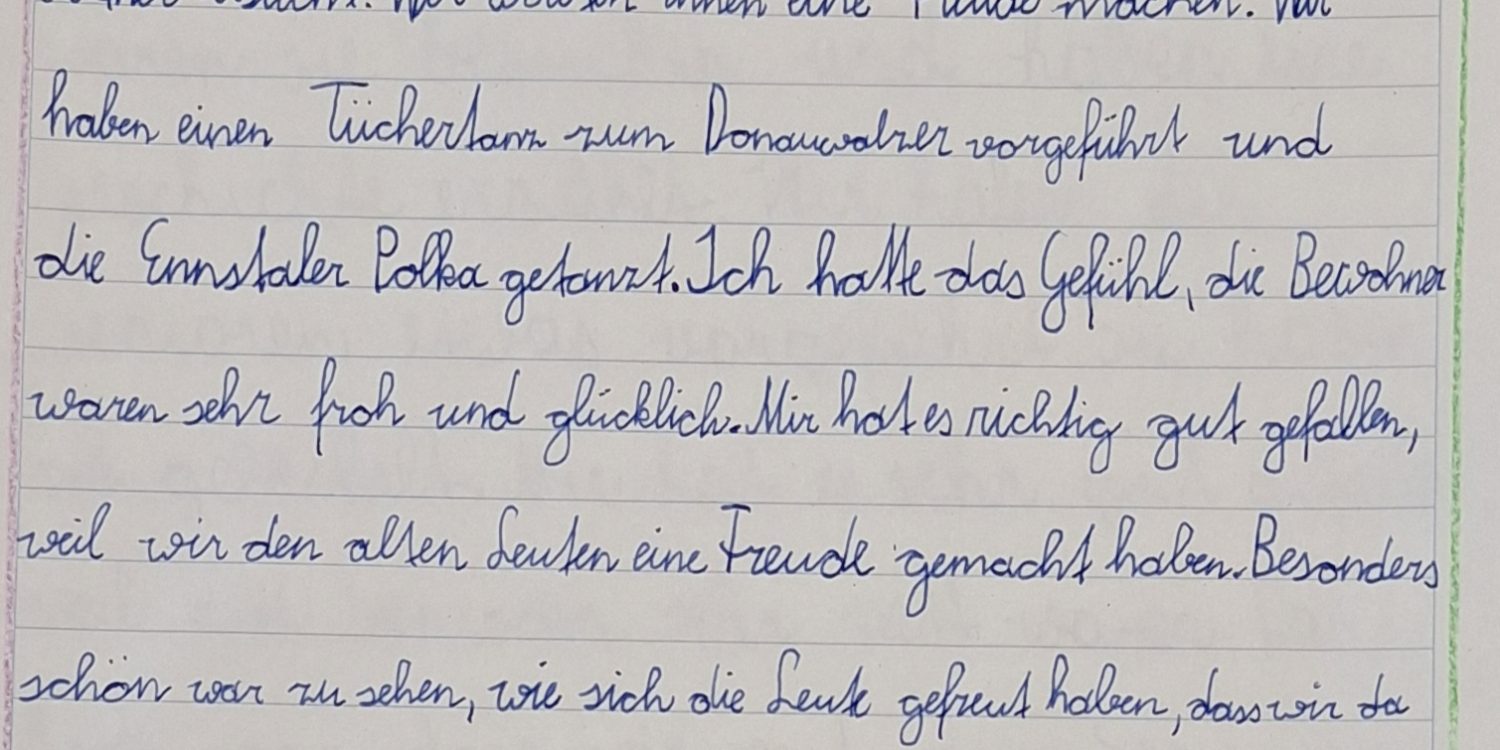 wollten ihnen eine Freude machen. Wir
haben einen Tüchertanz zum Donauwalzer vorgeführt und
die Ennstaler Polka getanzt. Ich hatte das Gefühl, die Bewohner
waren sehr froh und glücklich. Mir hat es richtig gut gefallen,
weil wir den alten Leuten eine Freude gemacht haben. Besonders
schön war zu sehen, wie sich die Leute gefreut haben, dass wir da